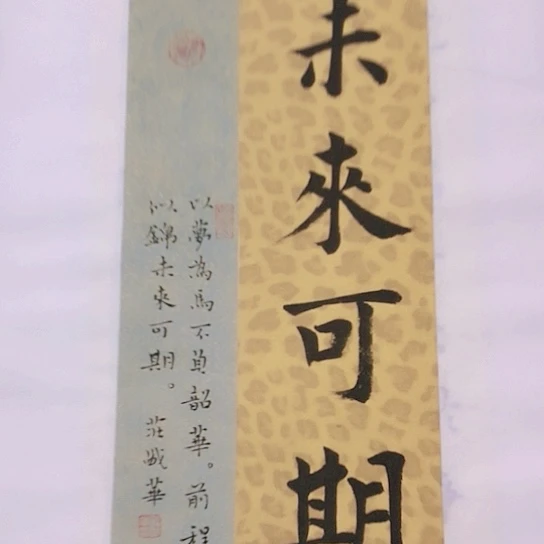 未來可期
以夢為馬不負韶華。前程
以錦未來可期。莊
華